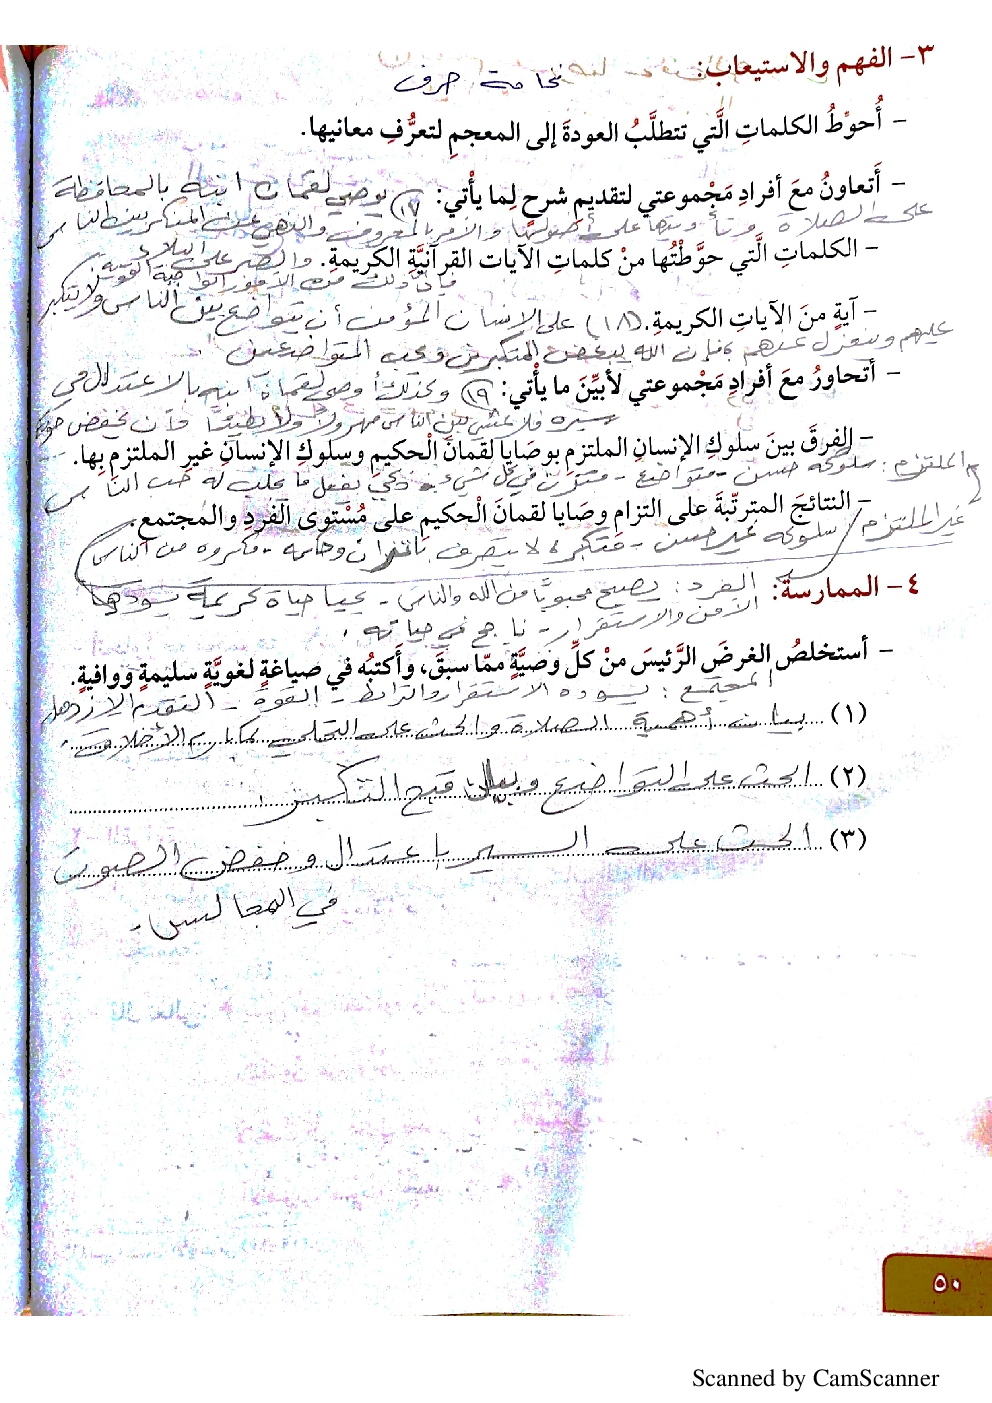 ٣- الفهم والاستيعاب:
- أُحوِّطُ الكلماتِ الَّتي تتطلَّبُ العودةَ إلى المعجمِ لتعرُّفِ معانيها.
- أَتعاونُ معَ أفرادِ مَجْموعتي لتقديمِ شرحٍ لِما يأْتي: (١٧) يوصي لقمان ابنه بالمحافظة
على الصلاة وتأديتها على أصولها والأمر بالمعروف والنهي عن المنكر بين الناس
- الكلماتِ الَّتي حوَّطْتُها منْ كلماتِ الآيات القرآنيَّةِ الكريمةِ. والصبر على البلاء
فإن ذلك من الأمور الواجبة
- آيةٍ منَ الآياتِ الكريمةِ. (١٨) على الإنسان المؤمن أن يتواضع بين الناس ولا يتكبر
عليهم وينعزل عنهم فإن الله يبغض المتكبرين ويحب المتواضعين
- أتحاورُ معَ أفرادِ مَجْموعتي لأبيِّنَ ما يأْتي: (١٩) وكذلك أوصى لقمان ابنه بالاعتدال في
سيره فلا يمشي بين الناس مهرولا ولا بطيئا وأن يخفض صوته
- الفرقَ بينَ سلوكِ الإنسانِ الملتزمِ بوصَايا لقمانَ الْحكيمِ وسلوكِ الإنسانِ غيرِ الملتزمِ بِها.
الملتزم: سلوكه حسن - متواضع - متزن في كل شيء - يفعل ما يجلب له حب الناس
- النتائجَ المترتّبةَ على التزامِ وصَايا لقمانَ الْحكيمِ على مُسْتوى الفَردِ والمُجتمعِ.
غير الملتزم / سلوكه غير حسن - متكبر لا يتصرف باتزان وحكمة - مكروه من الناس
٤- الممارسة: الفرد: يصبح محبوبًا من الله والناس - يحيا حياة كريمة يسودها
الأمن والاستقرار - ناجح في حياته.
- أستخلصُ الغرضَ الرَّئيسَ منْ كلِّ وصيَّةٍ ممّا سبقَ، وأَكتبُه في صياغةٍ لغويَّةٍ سليمةٍ ووافيةٍ.
المجتمع: يسوده الاستقرار والترابط - القوة - التقدم والازدهار
(١) بيان أهمية الصلاة والحث على التحلي بمكارم الأخلاق.
(٢) الحث على التواضع وبيان قبح التكبر.
(٣) الحث على السير باعتدال وخفض الصوت
في المجالس.
٥٠
Scanned by CamScanner